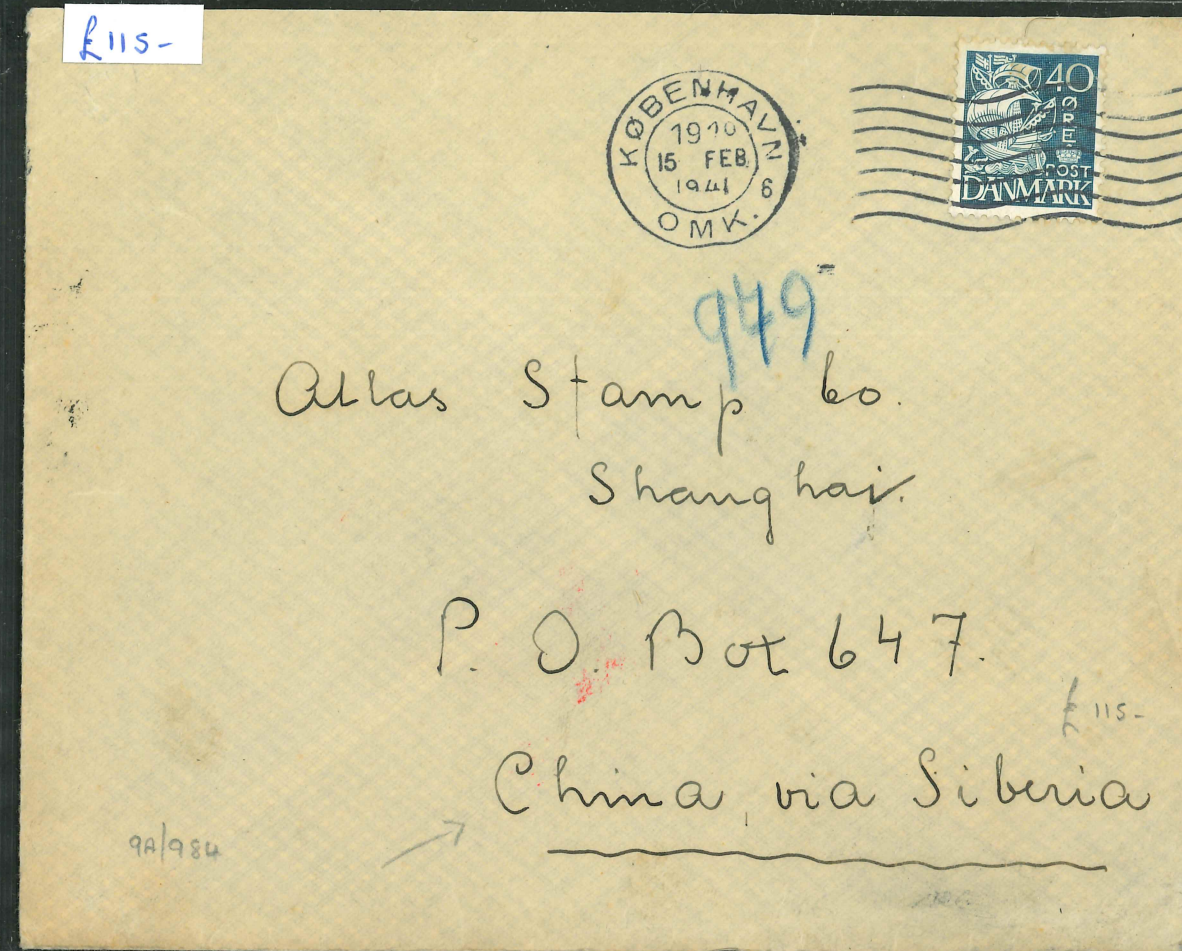 £115-
KØBENHAVN
1940
15 FEB.
1941
6
OMK.
40
ØRE
POST
DANMARK
949
Atlas Stamp Co.
Shanghai.
P. O. Box 647.
£115-
China, via Siberia
9A/984